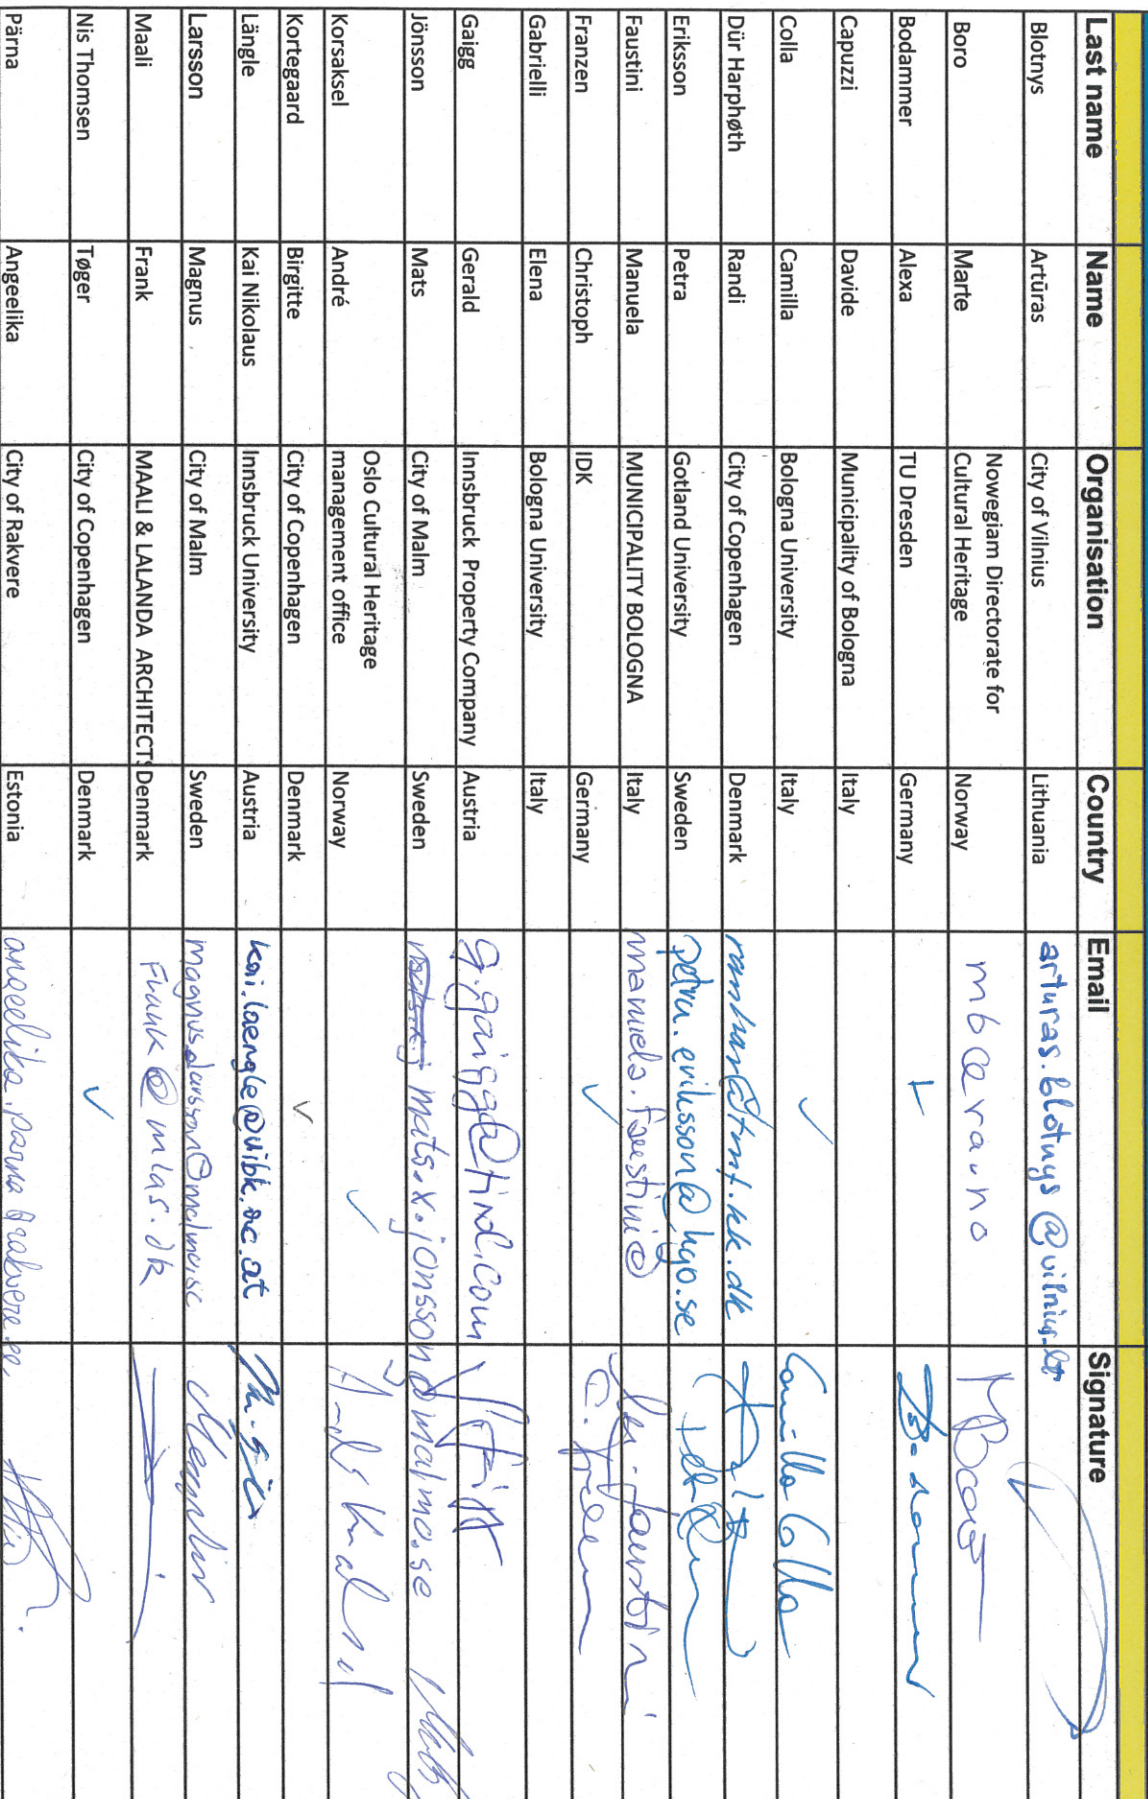 Last name Name Organisation Country Email Signature
Blotnys Artūras City of Vilnius Lithuania arturas.blotnys@vilnius.lt
Boro Marte Nowegiam Directorate for
Cultural Heritage Norway mb@ra.no MBoro
Bodammer Alexa TU Dresden Germany
Capuzzi Davide Municipality of Bologna Italy
Colla Camilla Bologna University Italy ✓ Camilla Colla
Dür Harphøth Randi City of Copenhagen Denmark ranhar@tmf.kk.dk
Eriksson Petra Gotland University Sweden petra.eriksson@hgo.se
Faustini Manuela MUNICIPALITY BOLOGNA Italy manuela.faustini@
Franzen Christoph IDK Germany ✓
Gabrielli Elena Bologna University Italy
Gaigg Gerald Innsbruck Property Company Austria g.gaigg@
Jönsson Mats City of Malm Sweden mats.x.jonsson@malmo.se
Korsaksel André Oslo Cultural Heritage
management office Norway ✓
Kortegaard Birgitte City of Copenhagen Denmark ✓
Längle Kai Nikolaus Innsbruck University Austria kai.laengle@uibk.ac.at
Larsson Magnus City of Malm Sweden
Maali Frank MAALI & LALANDA ARCHITECTS Denmark Frank@mlas.dk
Nis Thomsen Tøger City of Copenhagen Denmark ✓
Pärna Angeelika City of Rakvere Estonia angeelika.parna@rakvere.ee